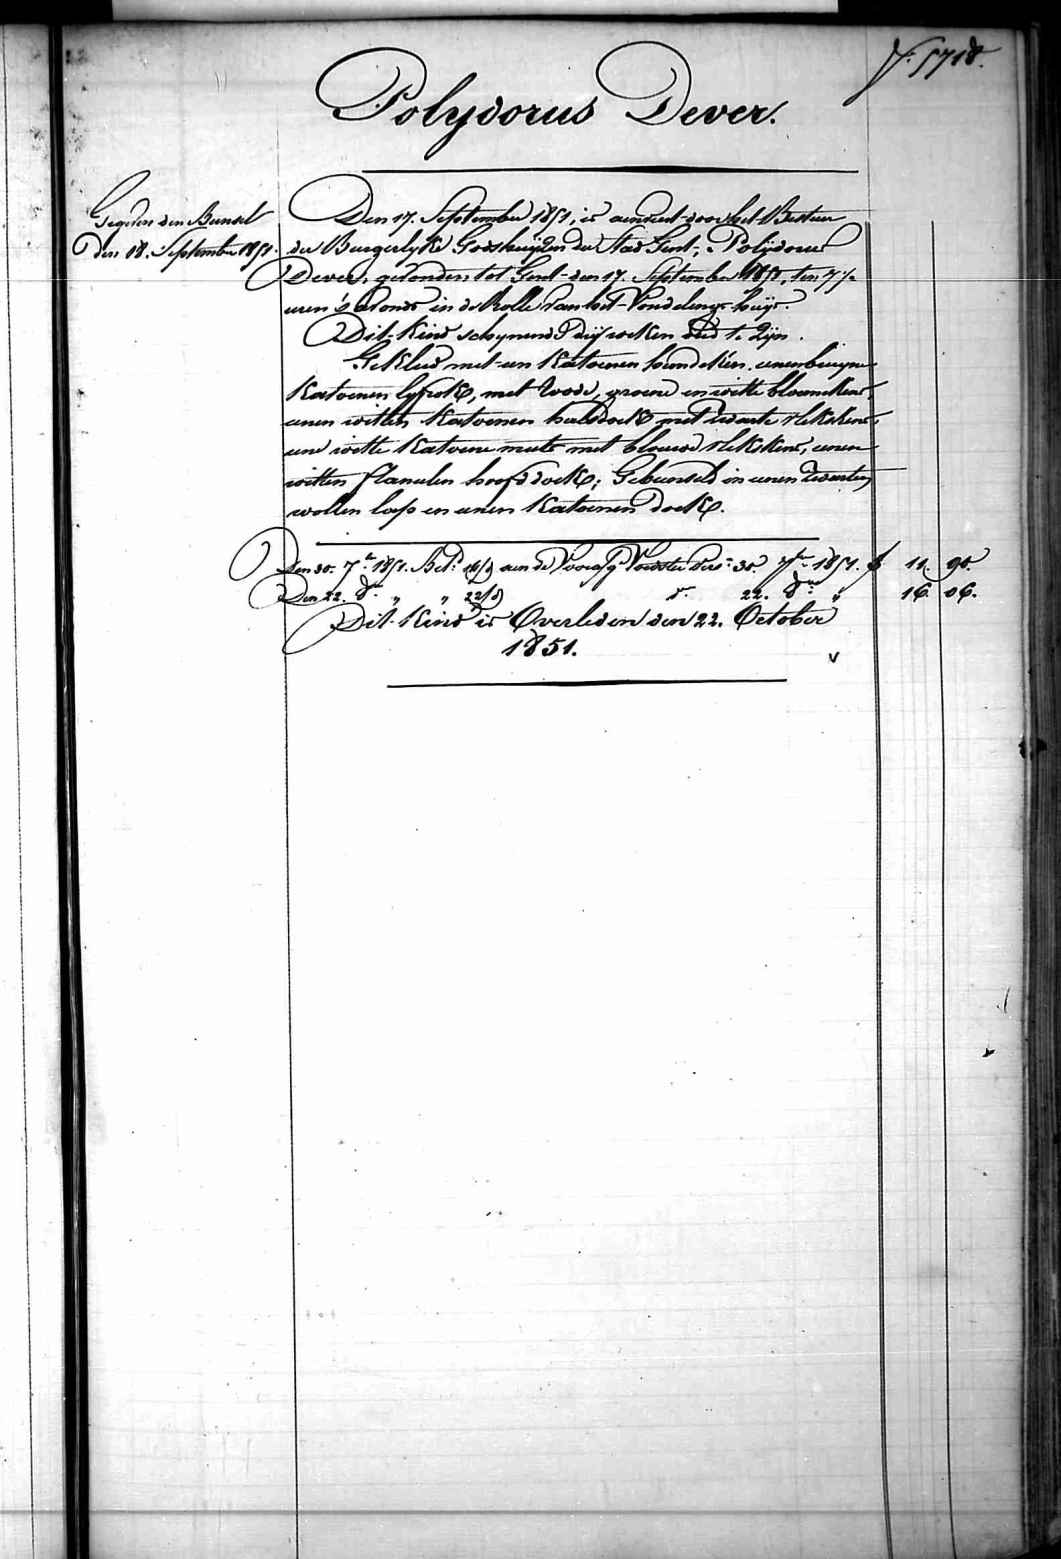 N.º 5718.
Polydorus Dever.
Gegeven den Bunsel
Den 18. September 1851.
Den 17. September 1851, is aenveert door het Bestuer
der Burgerlyke Godshuijzen der Stad Gent; Polijdorus
Dever, gevonden tot Gent den 17. September 1851, ten 7 ½
uren 's avonds in de Rolle van het Vondelings-huijs.
Dit Kind schynende dry weken oud te Zijn.
Gekleed met een Katoenen hemdeken, eenen bruyne
Katoenen lyfrok, met Roode, groene en witte bloemekens,
eenen witten Katoenen halsdoek met Zwarte vlekskens,
eene witte Katoene muts met blauwe vlekskens, eenen
witten flanelen hoofddoek; Gebunseld in eenen Zwarten
wollen lap en eenen Katoenen doek.
Den 30. 7.re 1851. Bet. 14/d aen de Voorsz. Voedster 30. 7.re 1851. f 11. 90.
Den 22. 8.re " " 22/d d.º 22. 8.re " 16. 06.
Dit Kind is Overleden den 22. October
1851.
v